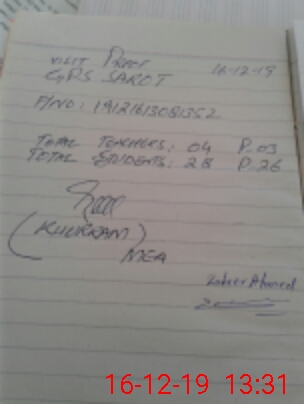 VISIT PROOF
GPS SAROT 16-12-19
TOTAL TEACHERS: 04 P.03
TOTAL STUDENTS: 28 P.26
(KHURRAM)
MEA
Zaheer Ahmed
16-12-19 13:31